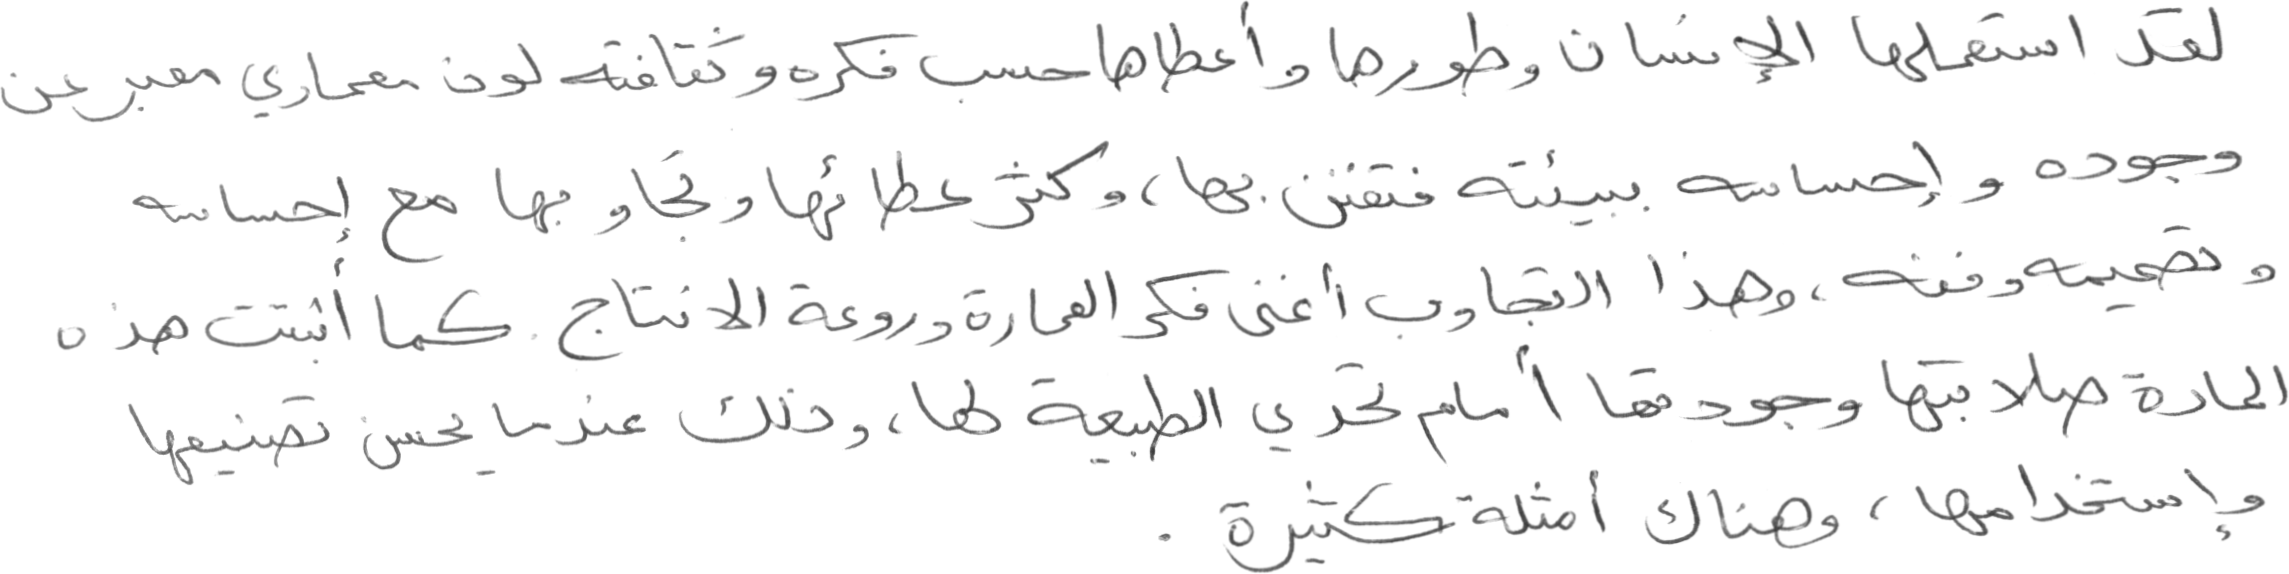 لقد استعملها الإنسان وطورها وأعطاها حسب فكره وثقافته لون معماري معبر عن
وجوده وإحساسه ببيئته فتفنن بها، وكثر عطائها وتجاوبها مع إحساسه
وتصميمه وفنه، وهذا التجاوب أغنى فكر العمارة وروعة الانتاج. كما أثبتت هذه
المادة صلابتها وجودتها أمام تحدي الطبيعة لها، وذلك عندما يحسن تصنيعها
وإستخدامها، وهناك أمثلة كثيرة.